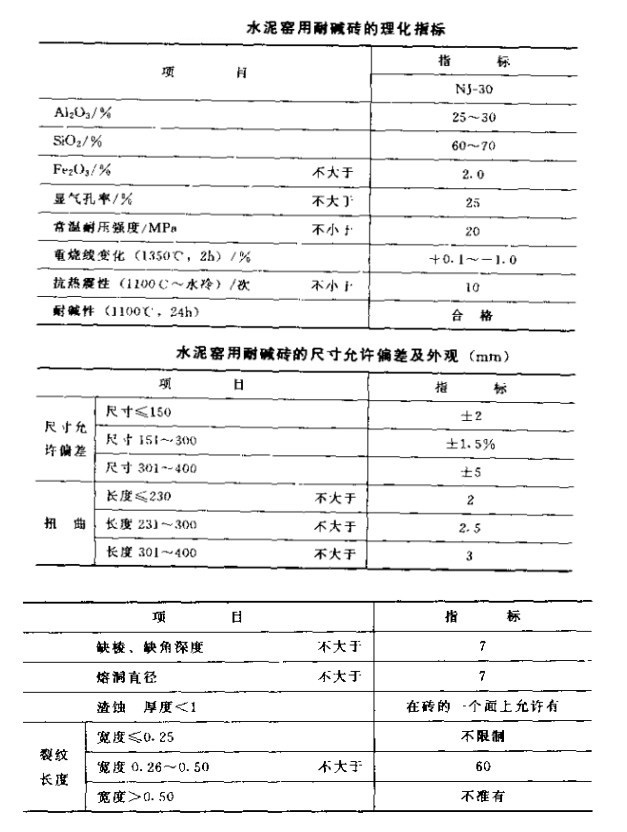 水泥窑用耐碱砖的理化指标
项 目 指 标
NJ-30
Al₂O₃/% 25～30
SiO₂/% 60～70
Fe₂O₃/% 不大于 2.0
显气孔率/% 不大于 25
常温耐压强度/MPa 不小于 20
重烧线变化(1350℃,2h)/% +0.1～-1.0
抗热震性(1100℃～水冷)/次 不小于 10
耐碱性(1100℃,24h) 合 格
水泥窑用耐碱砖的尺寸允许偏差及外观(mm)
项 目 指 标
尺寸允许偏差 尺寸≤150 ±2
尺寸 151～300 ±1.5%
尺寸 301～400 ±5
扭 曲 长度≤230 不大于 2
长度 231～300 不大于 2.5
长度 301～400 不大于 3
项 目 指 标
缺棱、缺角深度 不大于 7
熔洞直径 不大于 7
渣蚀 厚度<1 在砖的一个面上允许有
裂纹长度 宽度≤0.25 不限制
宽度 0.26～0.50 不大于 60
宽度>0.50 不准有